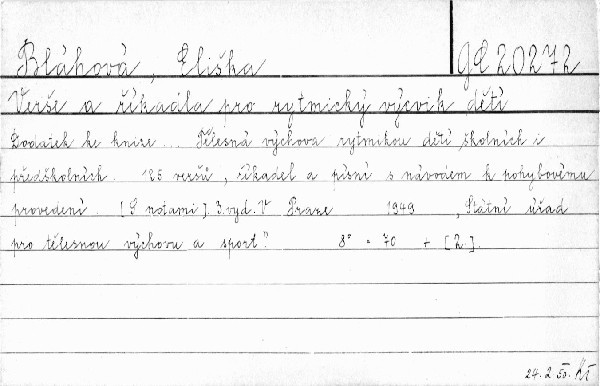 Bláhová, Eliška GE 20272
Verše a říkadla pro rytmický výcvik dětí
Dodatek ke knize ... Tělesná výchova rytmikou dětí školních i
předškolních. 125 veršů, říkadel a písní s návodem k pohybovému
provedení. [S notami]. 3. vyd. V Praze 1949, Státní úřad
pro tělesnou výchovu a sport? 8° = 70 + [2].
24. 2. 50.